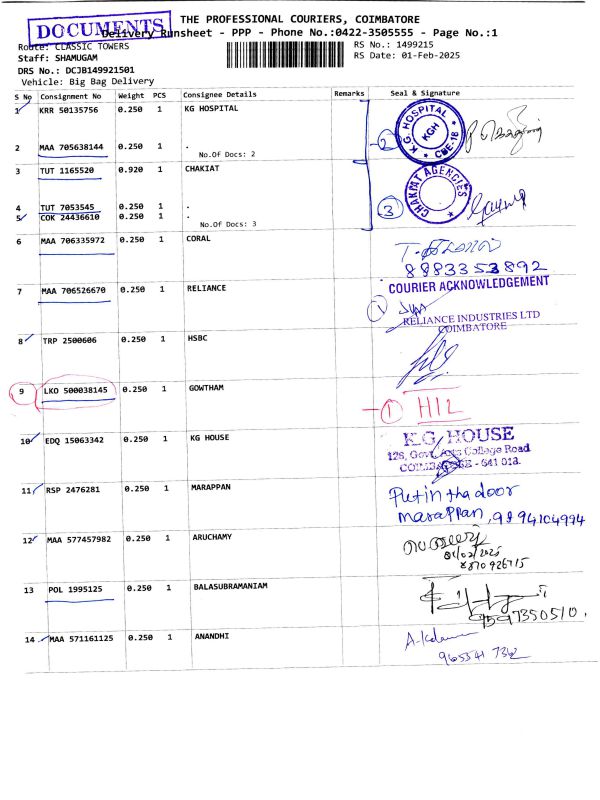 THE PROFESSIONAL COURIERS, COIMBATORE
DOCUMENTS
Delivery Runsheet - PPP - Phone No.:0422-3505555 - Page No.:1
Route: CLASSIC TOWERS
RS No.: 1499215
Staff: SHAMUGAM
RS Date: 01-Feb-2025
DRS No.: DCJB149921501
Vehicle: Big Bag Delivery
S No Consignment No Weight PCS Consignee Details Remarks Seal & Signature
1 KRR 50135756 0.250 1 KG HOSPITAL
K.G. HOSPITAL
KGH
CBE-18
2
2 MAA 705638144 0.250 1 .
No.Of Docs: 2
3 TUT 1165520 0.920 1 CHAKIAT
CHAKIAT AGENCIES
3
4 TUT 7053545 0.250 1 .
5 COK 24436610 0.250 1 .
No.Of Docs: 3
6 MAA 706335972 0.250 1 CORAL
8883353892
7 MAA 706526670 0.250 1 RELIANCE
COURIER ACKNOWLEDGEMENT
1
RELIANCE INDUSTRIES LTD
COIMBATORE
8 TRP 2500606 0.250 1 HSBC
9 LKO 500038145 0.250 1 GOWTHAM
1 H12
10 EDQ 15063342 0.250 1 KG HOUSE
K.G. HOUSE
126, Govt. Arts College Road
COIMBATORE - 641 018.
11 RSP 2476281 0.250 1 MARAPPAN
Put in tha door
marappan, 9894104994
12 MAA 577457982 0.250 1 ARUCHAMY
01/02/2025
8870926715
13 POL 1995125 0.250 1 BALASUBRAMANIAM
9597350510.
14 MAA 571161125 0.250 1 ANANDHI
965541 7362